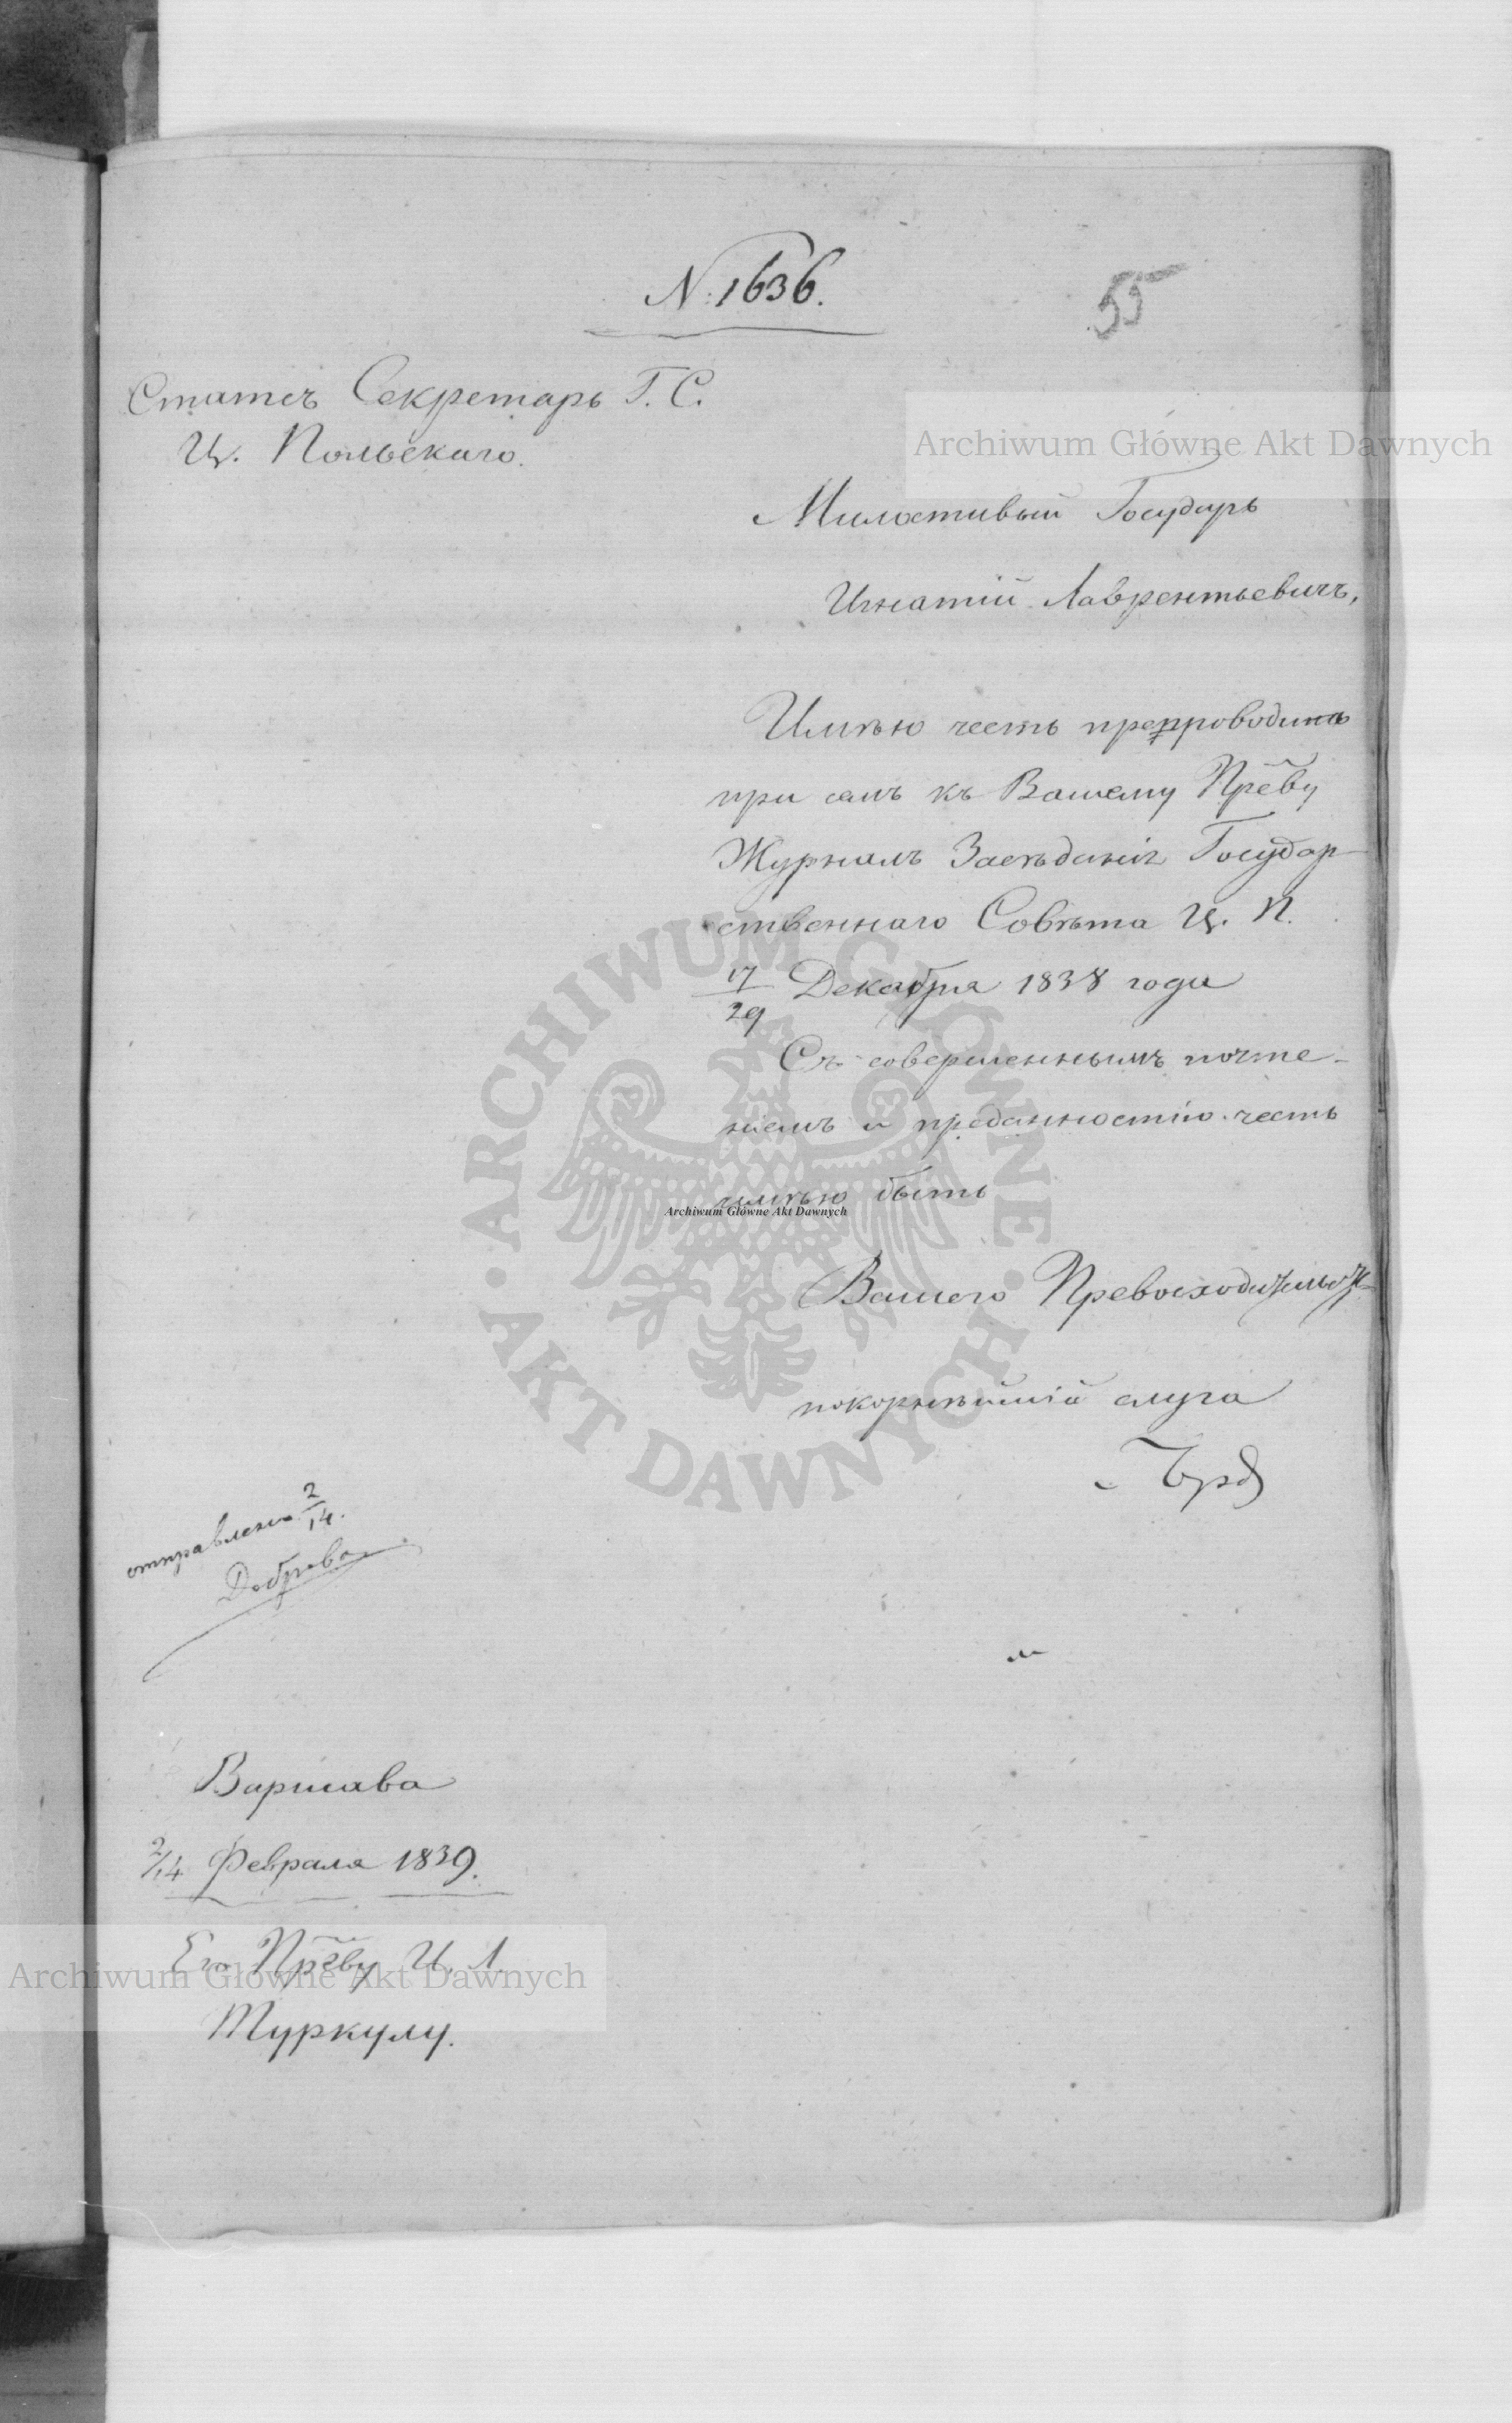 N. 1636.
55
Статсъ Секретарь Г. С.
Ц. Польскаго.
Archiwum Główne Akt Dawnych
Милостивый Государь
Игнатій Лаврентьевичъ,
Имѣю честь препроводить
при семъ къ Вашему Пр̃ву
Журналъ Засѣданія Государ-
ственнаго Совѣта Ц. П.
17/29 Декабря 1838 года
Съ совершеннымъ почте-
ніемъ и преданностію честь
имѣю быть
Archiwum Główne Akt Dawnych
Вашего Превосходительст.
покорнѣйшій слуга
отправлено 2/14.
ARCHIWUM GŁÓWNE
AKT DAWNYCH
Варшава
2/14 Февраля 1839.
Его Пр̃ву И. Л.
Archiwum Główne Akt Dawnych
Туркулу.